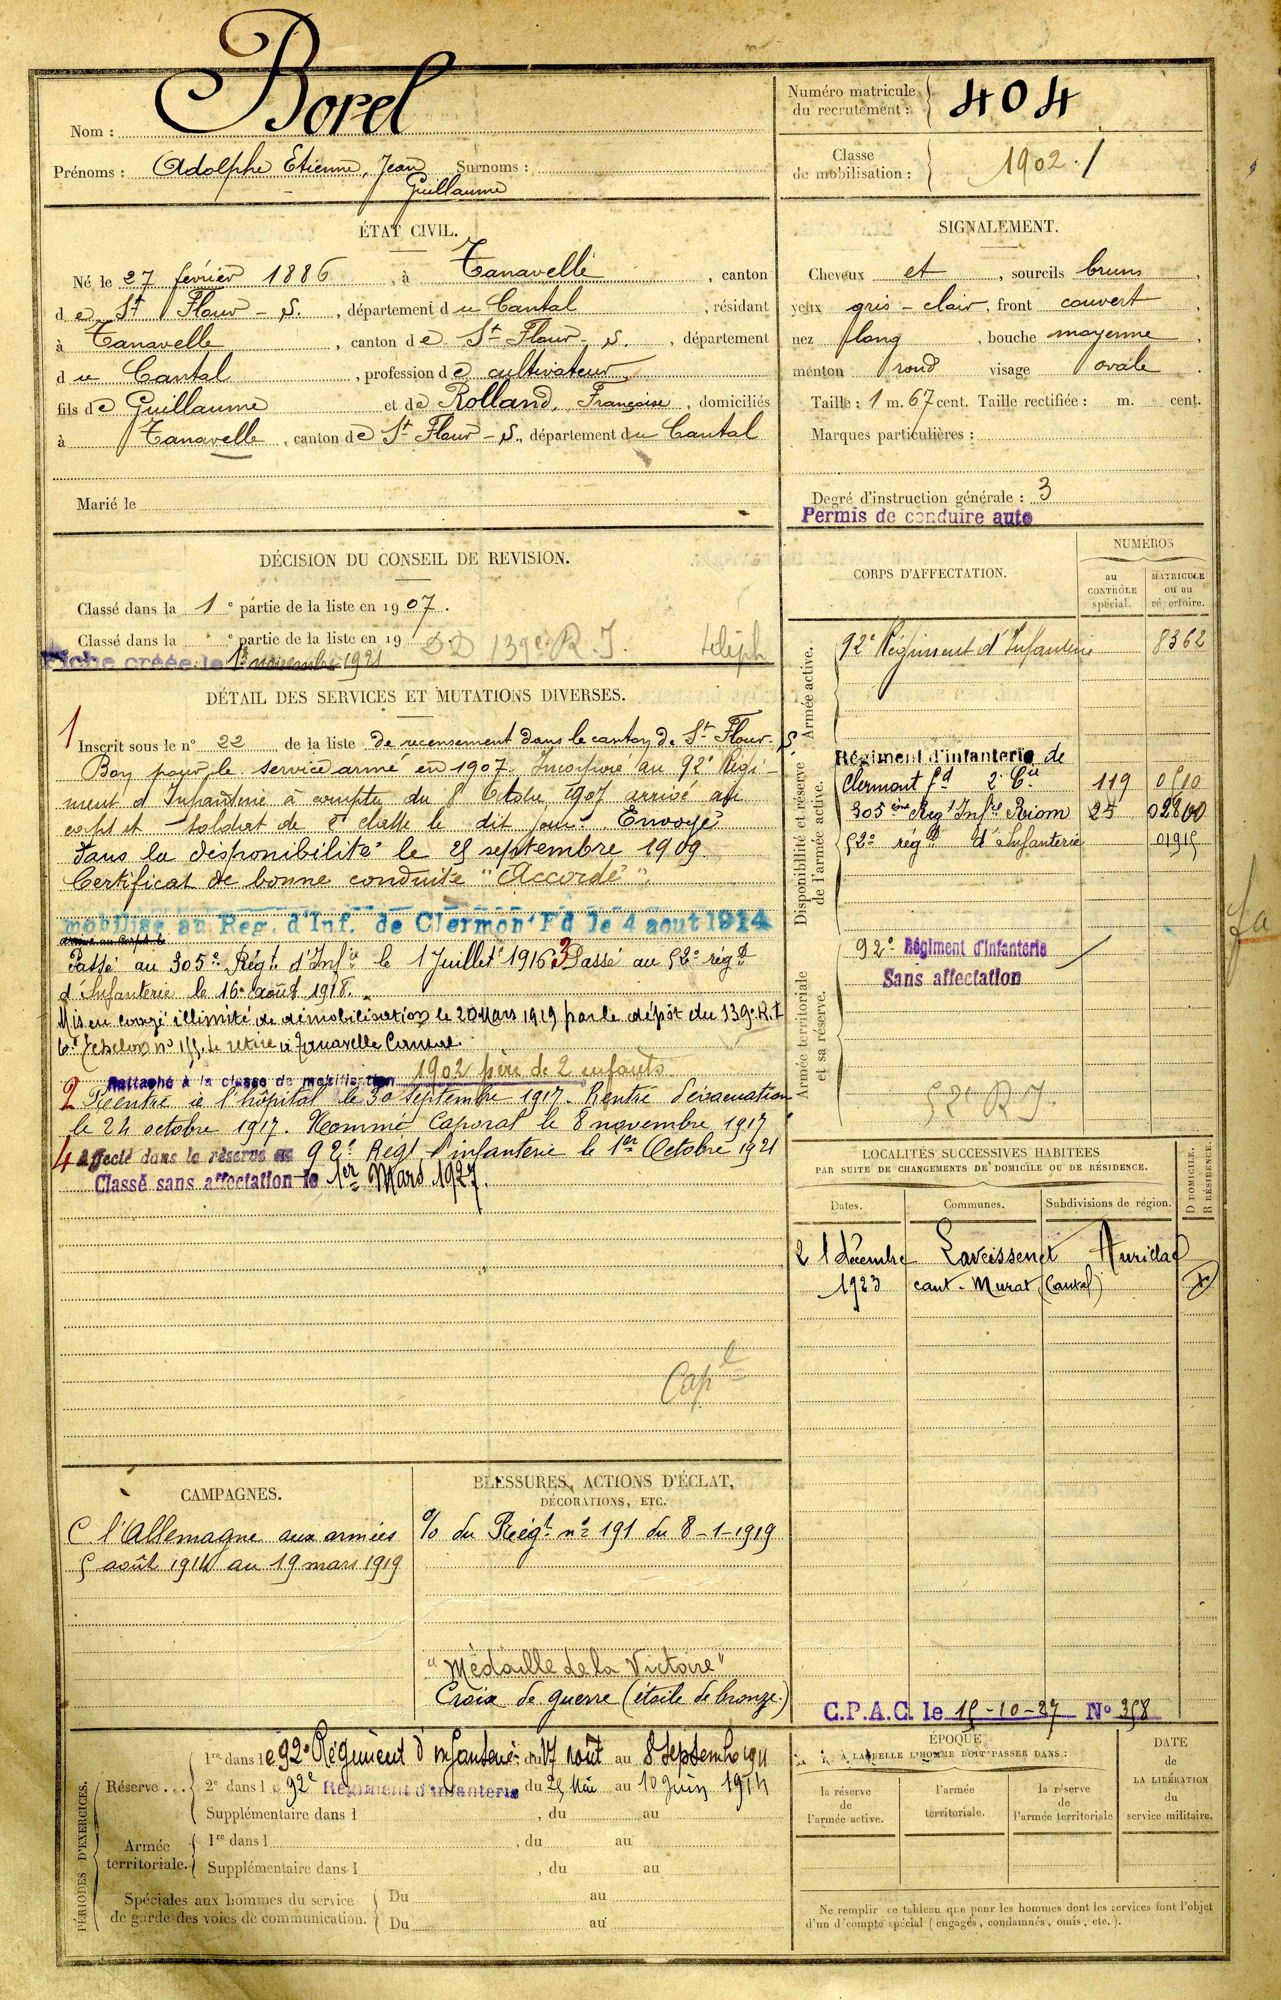 Nom : Borel
Prénoms : Adolphe Etienne, Jean Surnoms :
Guillaume
Numéro matricule
du recrutement : 404
Classe
de mobilisation : 1902
ÉTAT CIVIL.
Né le 27 février 1886, à Tanavelle, canton
de St Flour - S., département du Cantal, résidant
à Tanavelle, canton de St Flour - S., département
du Cantal, profession de cultivateur
fils de Guillaume et de Rolland, Françoise, domiciliés
à Tanavelle, canton de St Flour - S., département du Cantal
Marié le
SIGNALEMENT.
Cheveux et, sourcils bruns,
yeux gris - clair, front couvert,
nez long, bouche moyenne,
menton rond visage ovale.
Taille : 1 m. 67 cent. Taille rectifiée : m. cent.
Marques particulières :
Degré d'instruction générale : 3
Permis de conduire auto
DÉCISION DU CONSEIL DE REVISION.
Classé dans la 1e partie de la liste en 1907.
Classé dans la e partie de la liste en 19 DD 139e R.I. téléph
Fiche créée le 1er novembre 1921
DÉTAIL DES SERVICES ET MUTATIONS DIVERSES.
1 Inscrit sous le n° 22 de la liste de recensement dans le canton de St Flour - S.
Bon pour le service armé en 1907. Incorporé au 92e Régi-
ment d'Infanterie à compter du 8 Octobre 1907 arrivé au
corps et soldat de 2e classe le dit jour. Envoyé
dans la disponibilité le 25 septembre 1909.
Certificat de bonne conduite "Accordé".
mobilisé au Reg. d'Inf. de Clermont Fd le 4 aout 1914
arrivé au corps le
Passé au 305e Régt. d'Infie le 1 Juillet 1916 3 Passé au 52e régt
d'Infanterie le 16 août 1918.
Mis en congé illimité de démobilisation le 20 Mars 1919 par le dépôt du 139e R.I
6e Echelon n° 155. Se retire à Tanavelle Cantal.
Rattaché à la classe de mobilisation 1902 père de 2 enfants.
2 Rentré à l'hôpital le 30 septembre 1917. Rentré d'évacuation
le 24 octobre 1917. Nommé Caporal le 8 novembre 1917
4 Affecté dans la réserve au 92e Régt d'infanterie le 1er Octobre 1921
Classé sans affectation le 1er Mars 1927.
Capl
CORPS D'AFFECTATION.
NUMÉROS
au
CONTRÔLE
spécial.
MATRICULE
ou au
répertoire.
Armée active.
92e Régiment d'Infanterie 8362
Disponibilité et réserve
de l'armée active.
Régiment d'infanterie de
Clermont Fd 2e Cie 119 0510
305ème Reg Infie Riom 25
52e régt d'Infanterie 01915
Armée territoriale
et sa réserve.
92e Régiment d'Infanterie
Sans affectation
52e R.I.
LOCALITÉS SUCCESSIVES HABITÉES
PAR SUITE DE CHANGEMENTS DE DOMICILE OU DE RÉSIDENCE.
Dates. Communes. Subdivisions de région. D DOMICILE. R RÉSIDENCE.
21 décembre Laveissenet Aurillac
1923 cant. Murat (Cantal)
CAMPAGNES.
C. l'Allemagne aux armées
5 août 1914 au 19 mars 1919
BLESSURES, ACTIONS D'ÉCLAT,
DÉCORATIONS, ETC.
% du Régt n° 191 du 8-1-1919
"Médaille de la Victoire"
Croix de guerre (étoile de bronze.)
C.P.A.C. le 15-10-27 N° 358
PÉRIODES D'EXERCICES.
Réserve...
1re dans le 92e Régiment d'infanterie du 17 août au 8 septembre 1911
2e dans le 92e Régiment d'infanterie du 25 Mai au 10 juin 1914
Supplémentaire dans l , du au
Armée
territoriale.
1re dans l , du au
Supplémentaire dans l , du au
Spéciales aux hommes du service
de garde des voies de communication.
Du au
Du au
ÉPOQUE
À LAQUELLE L'HOMME DOIT PASSER DANS :
la réserve
de
l'armée active.
l'armée
territoriale.
la réserve
de
l'armée territoriale
DATE
de
LA LIBÉRATION
du
service militaire.
Ne remplir ce tableau que pour les hommes dont les services font l'objet
d'un décompte spécial (engagés, condamnés, omis, etc.).